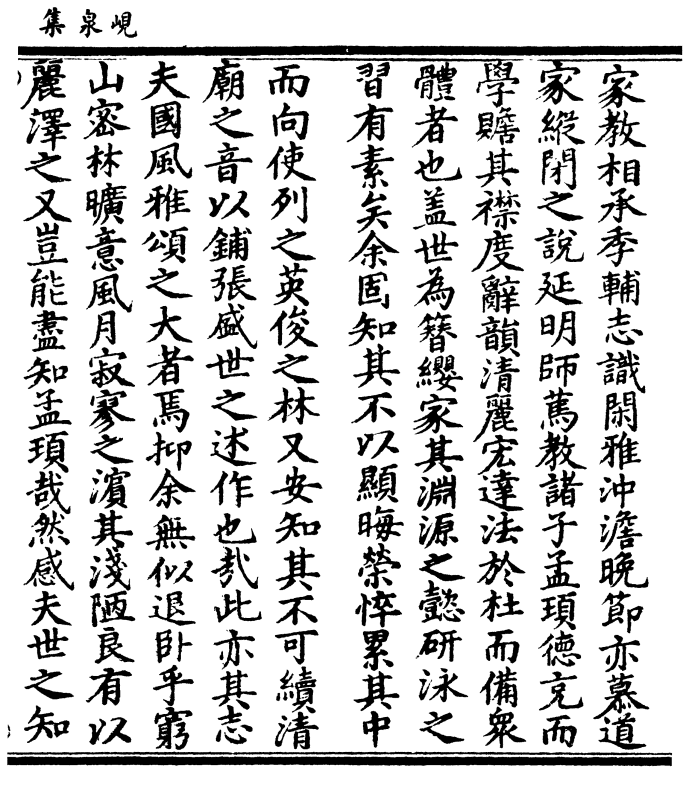 峴泉集
家教相承季輔志識閑雅沖澹晚節亦慕道
家縱閉之說延明師篤教諸子孟頊德充而
學贍其襟度辭韻清麗宏達法於杜而備衆
體者也盖世為簪纓家其淵源之懿研泳之
習有素矣余固知其不以顯晦榮悴累其中
而向使列之英俊之林又安知其不可續清
廟之音以鋪張盛世之述作也㢤此亦其志
夫國風雅頌之大者焉抑余無似退卧乎窮
山密林曠意風月寂寥之濱其淺陋良有以
麗澤之又豈能盡知孟頊哉然感夫世之知